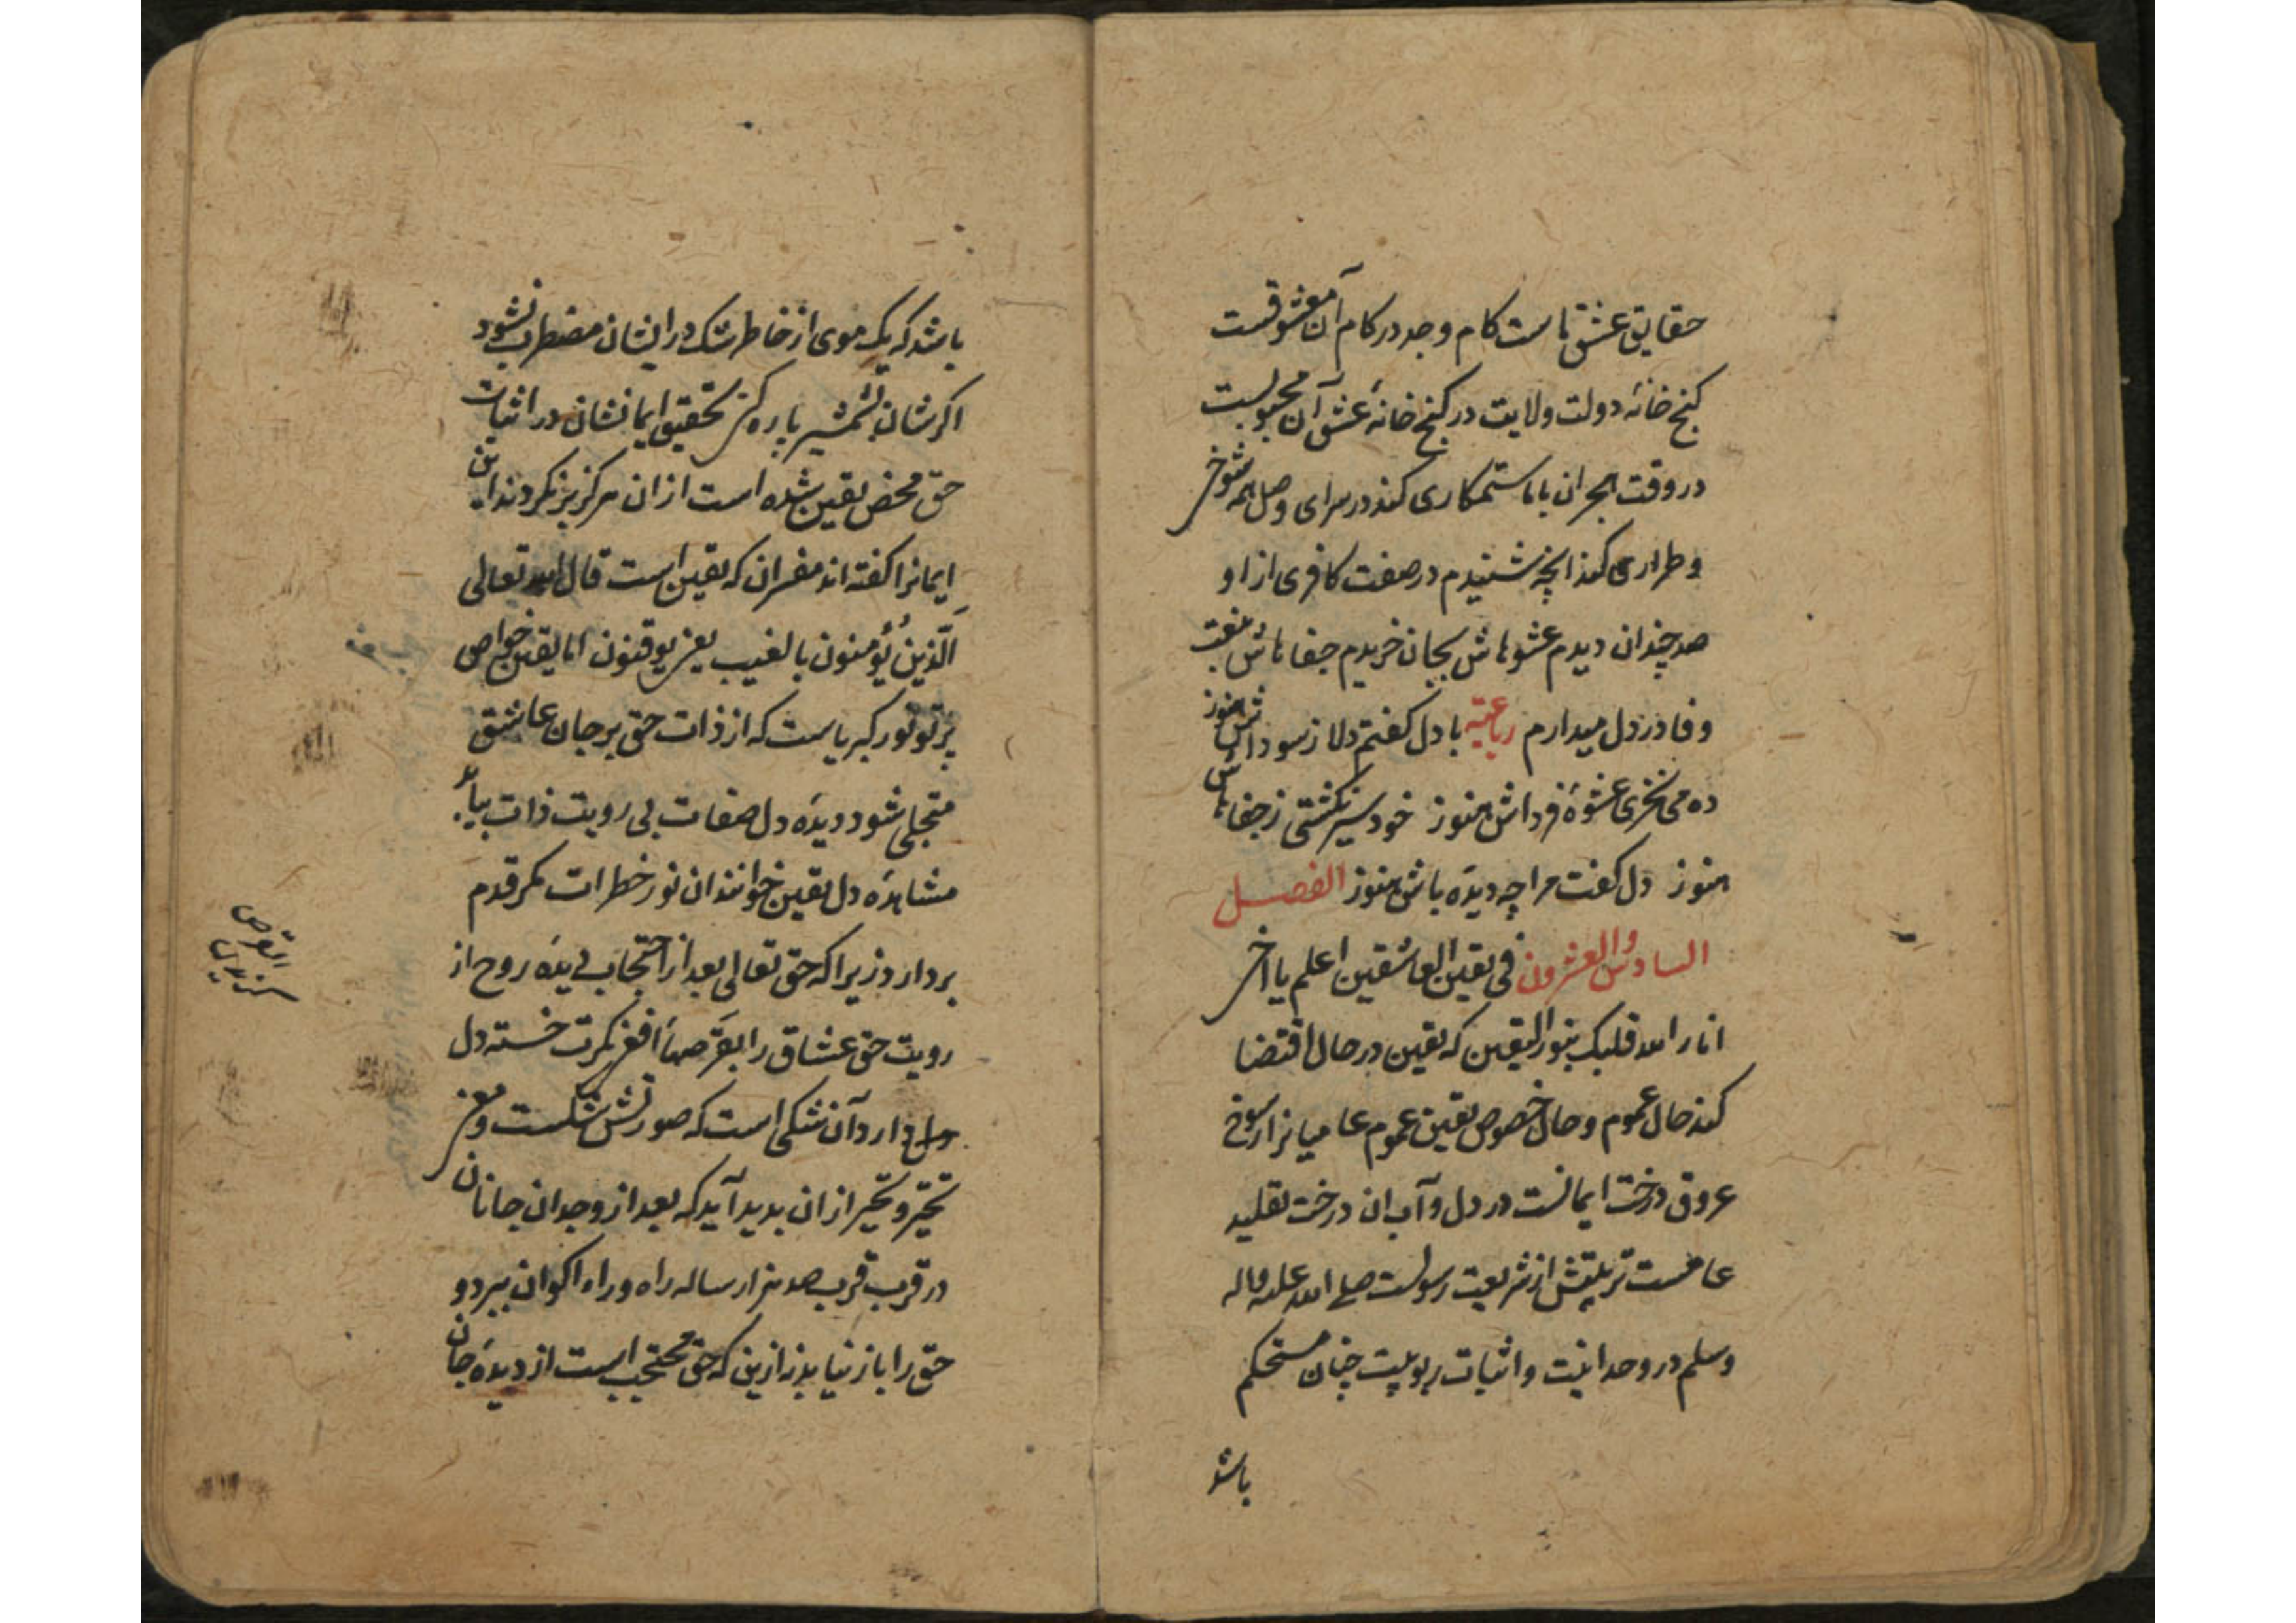 حقایق عشق ماست کام وجد در کام آن معشوقست
کنج خانهٔ دولت ولایت در کنج خانهٔ عشق آن محبوبست
در وقت هجران با ما ستمکاری کند در سرای وصل همه شوخی
و طراری کند انچه شنیدم در صفت کافری از او
صد چندان دیدم عشوهاش بجان خریدم جفاهاش بنعت
وفا در دل میدارم رباعیه با دل کفتم دلا ز سوداش هنوز
ده می نخری عشوهٔ فرداش هنوز خود سیر نکشتی ز جفاهاش
هنوز دل کفت مرا چه دیدهٔ باش هنوز الفصل
السادس والعشرون فی یقین العاشقین اعلم یا اخی
انار الله قلبک بنور الیقین که یقین در حال اقتضا
کند حال عموم و حال خصوص یقین عموم عامیانرا رسوخ
عروق درخت ایمانست در دل و آب ان درخت تقلید
عامست تربیتش از شریعت رسولست صلی الله علیه واله
وسلم در وحدانیت و اثبات ربوبیت چنان مستحکم
باشد
باشد که یک موی از خاطر شک در ایشان مضطرب نشود
اکرشان بشمشیر پاره کنی تحقیق ایمانشان در اثبات
حق محض یقین شده است از ان هرکز برنکردند این
ایمانرا کفته اند مفسران که یقین است قال الله تعالی
اَلَّذینَ یُؤمنون بالغیب یعنی یوقنون اما یقین خواص
پرتو نور کبریاست که از ذات حق بر جان عاشق
متجلی شود دیدهٔ دل صفات بی رویت ذات بیابد
مشاهدهٔ دل یقین خوانند ان نور خطرات مکر قدم
بردارد زیرا که حق تعالی بعد از احتجاب دیدهٔ روح از
رویت حق عشاق را بقرصها افعی نکرت خسته دل
دارد آن شکی است که صورتش شکست و مغز
تحیّر و تحیر از ان بدید آید که بعد از وجدان جانان
در قرب قرب صد هزار ساله راه وراء اکوان ببرد و
حق را باز نیابد نه ازین که حق محتجب است از دیدهٔ جان